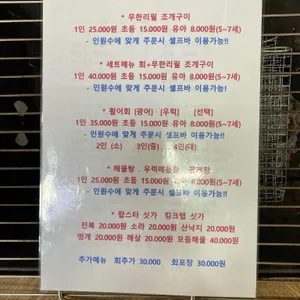 * 무한리필 조개구이
1인 25.000원 초등 15.000원 유아 8.000원(5~7세)
- 인원수에 맞게 주문시 셀프바 이용가능!!
* 세트메뉴 회+무한리필 조개구이
1인 40.000원 초등 15.000원 유아 8.000원(5~7세)
- 인원수에 맞게 주문시 셀프바 이용가능!!
* 활어회 [광어] [우럭] [선택]
1인 35.000원 초등 15.000원 유아 8.000원(5~7세)
- 인원수에 맞게 주문시 셀프바 이용가능!!
2인 (소) 3인(중) 4인(대)
* 해물탕 . 우럭매운탕
1인 25.000원 초등 15.000원 유아 8.000원(5~7세)
- 인원수에 맞게 주문시 셀프바 이용가능!!
* 랍스타 싯가 킹크랩 싯가
전복 20.000원 소라 20.000원 산낙지 20.000원
멍게 20.000원 해삼 20.000원 모듬해물 40.000원
추가메뉴 회추가 30.000 회포장 30.000원